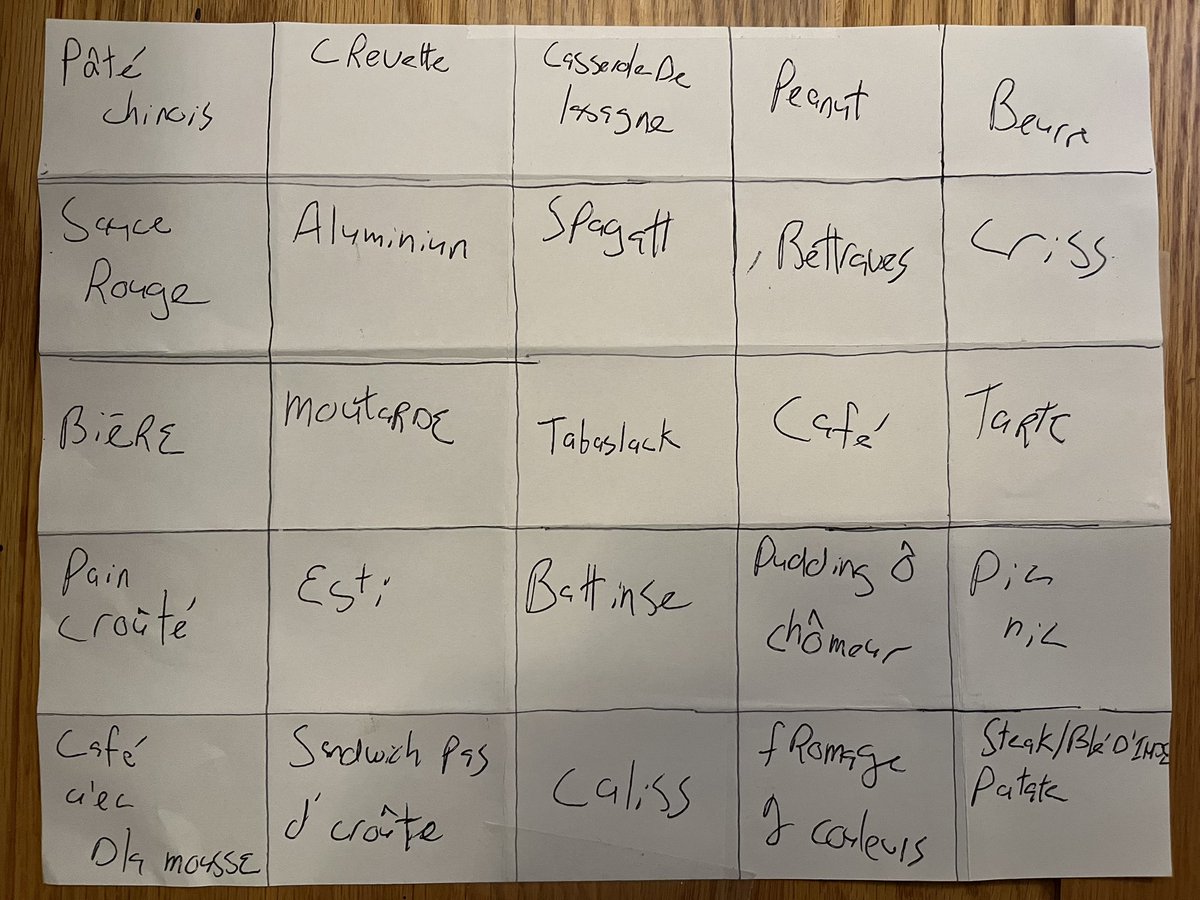 Pâté
chinois
CRevette
Casserole De
lasagne
Peanut
Beurre
Sauce
Rouge
Aluminiun
SPagatt
Bettraves
Criss
BiÈRE
MOÛTARDE
Tabaslack
Café
TARTE
Pain
croûté
Esti
Battinse
Pudding Ô
chômeur
Pic
nic
Café
a'ec
Dla mousse
Sandwich Pas
d' croûte
Caliss
fRomage
2 couleurs
Steak/Blé D'INDE
Patate